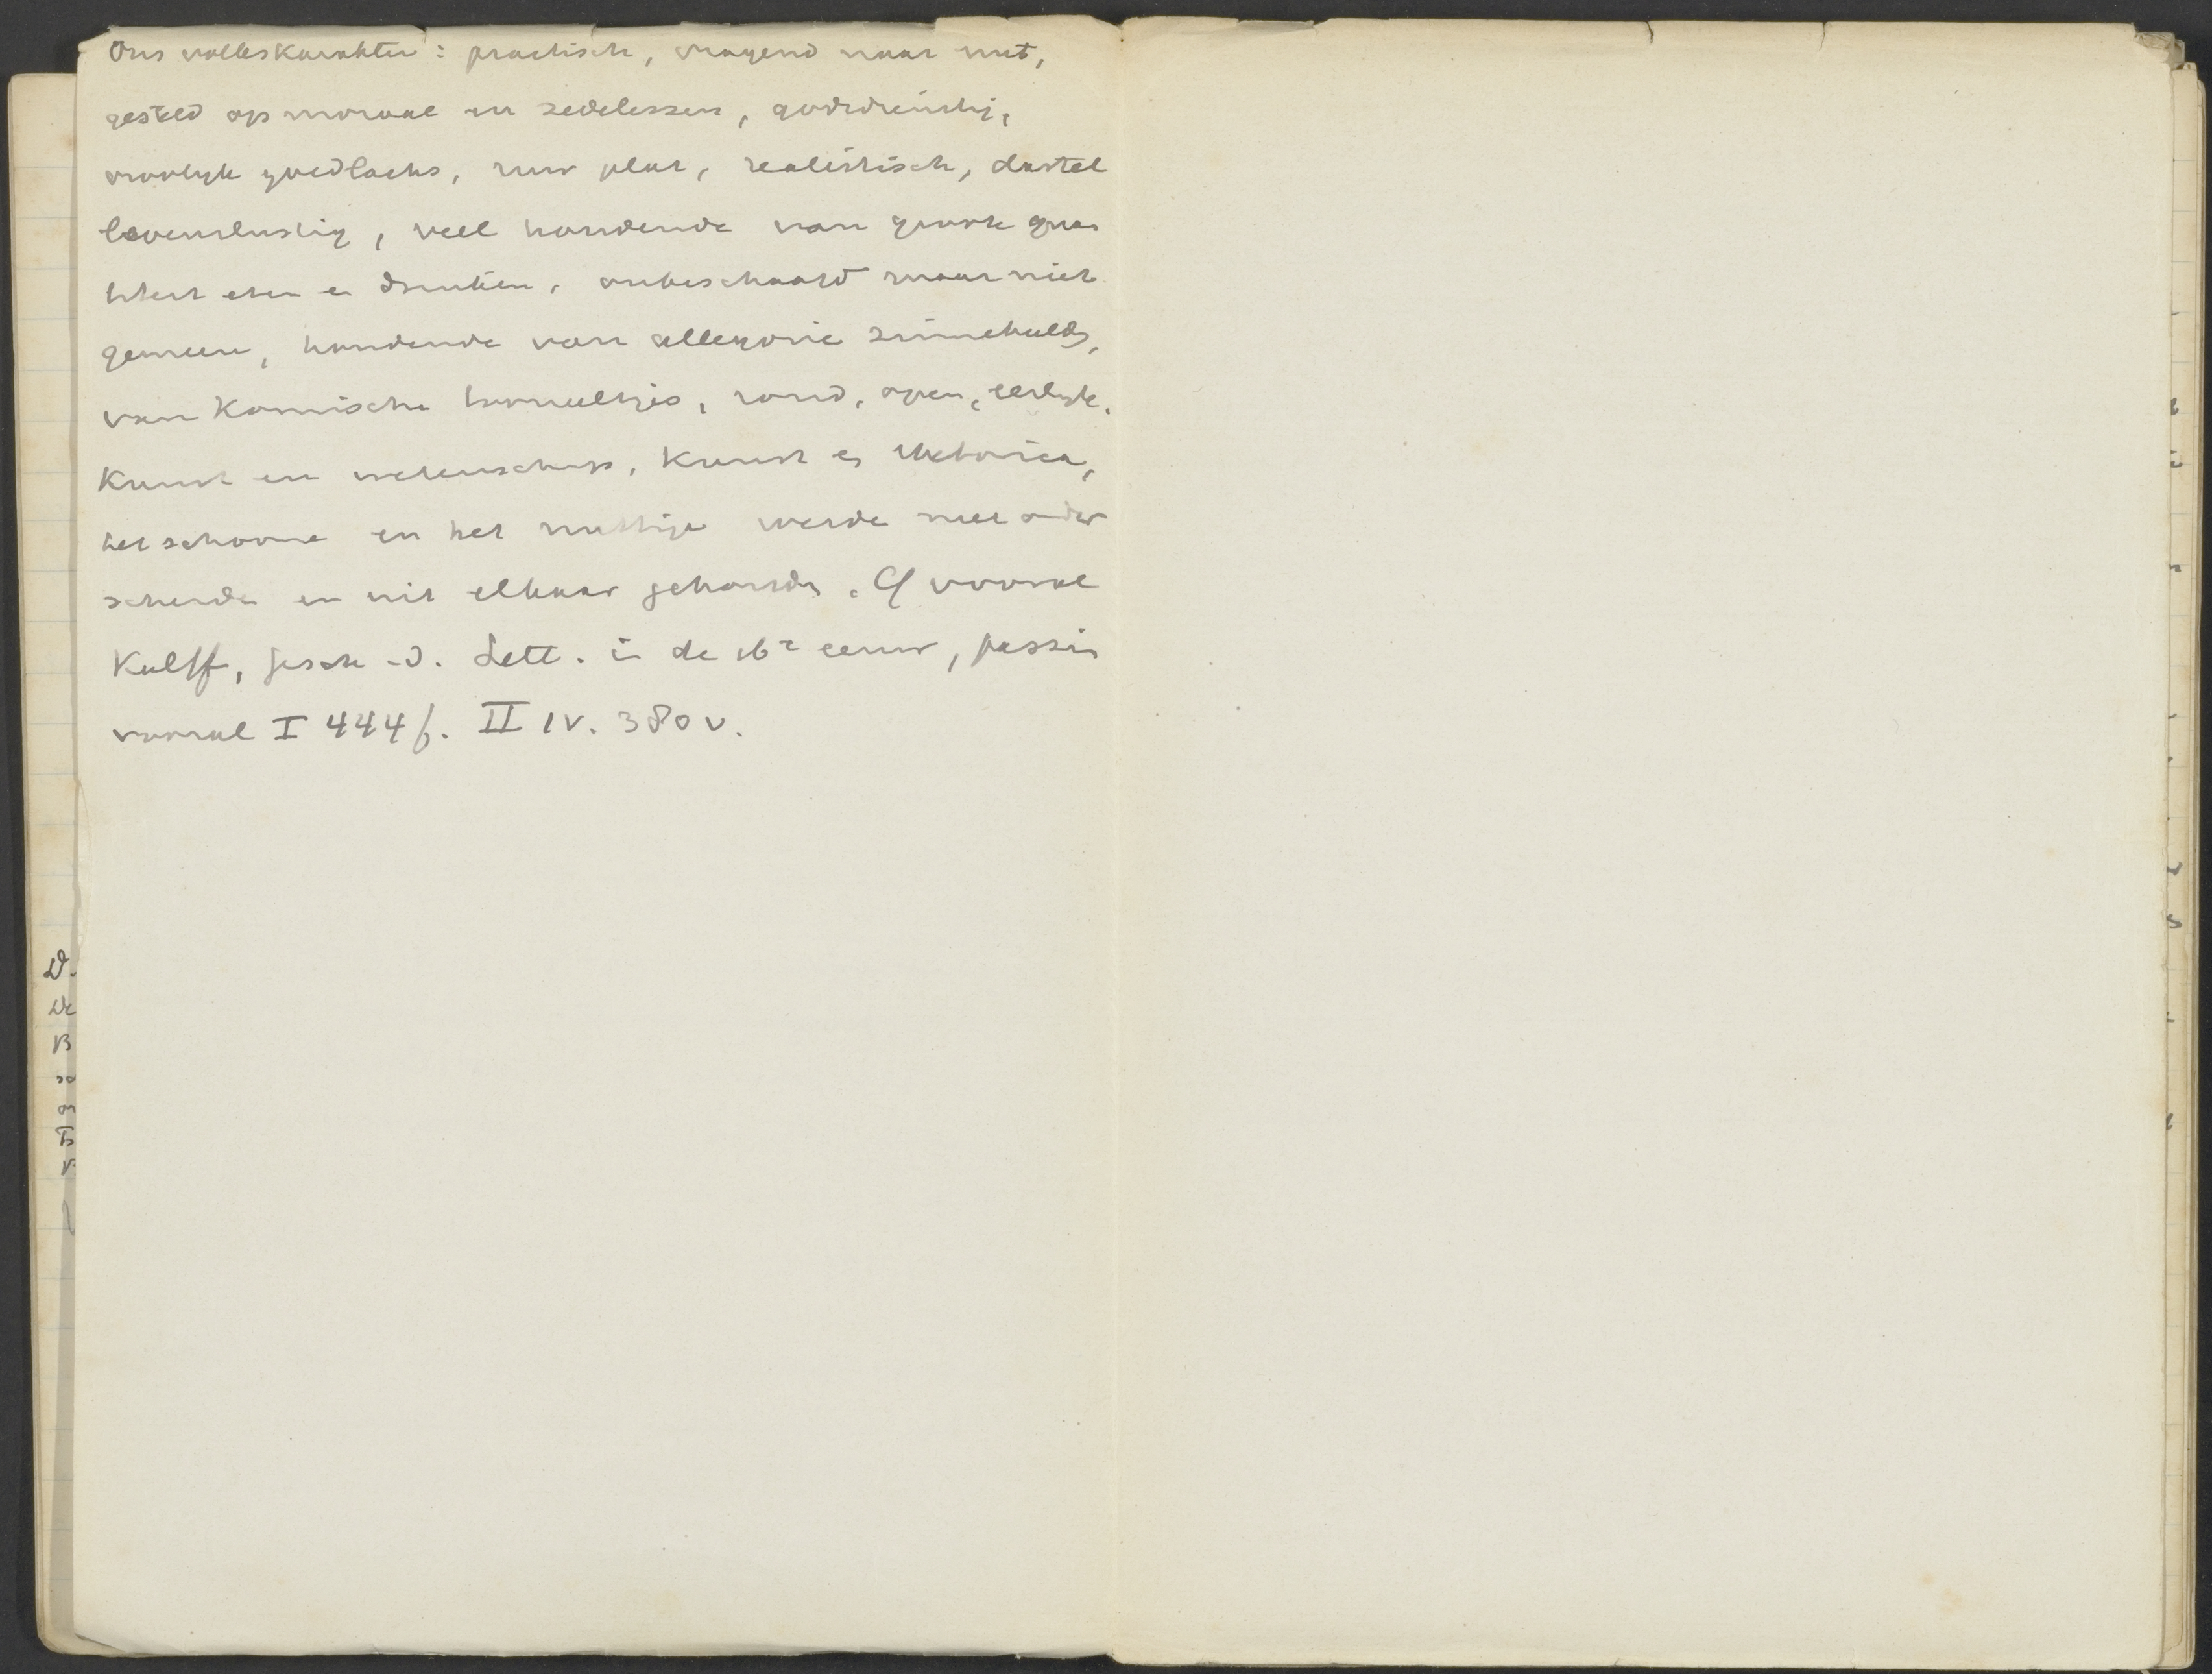 Ons volkskarakter: practisch, vragend naar nut,
gesteld op moraal en zedelessen, godsdienstig,
vroolyk goedlachs, ruw plat, realistisch, dartel
levenslustig, veel houdende van groote quan
titeit eten en drinken, onbeschaafd maar niet
gemeen, houdende van allegorie zinnebeelds,
van komische tooneeltjes, rond, open, eerlyk.
Kunst en wetenschap, kunst en rhetorica,
het schoone en het nuttige werde niet onder
scheide en uit elkaar gehouds. Cf vooral
Kalff, Gesch. d. Lett. in de 16e eeuw, passim
vooral I 444 f. II 1 v. 380 v.
D.
De
B